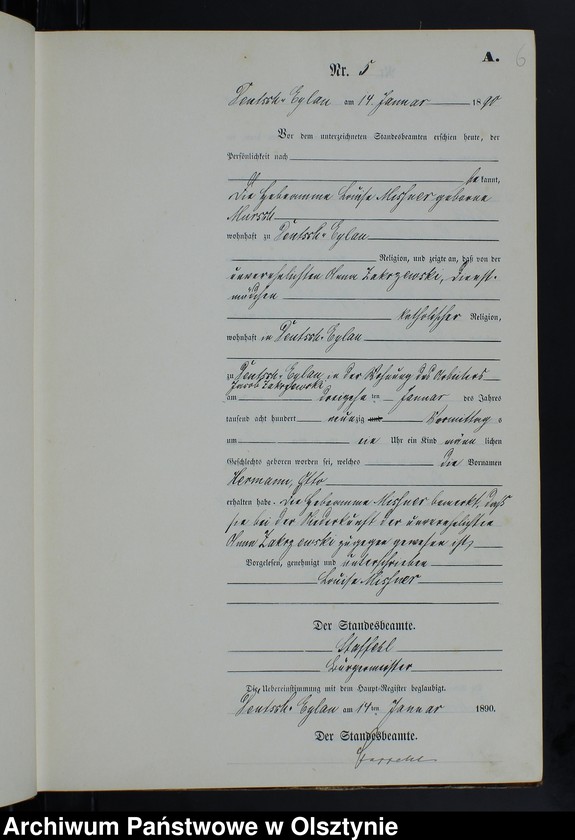 A. 6
Nr. 5
Deutsch-Eylau am 14. Januar 1890
Vor dem unterzeichneten Standesbeamten erschien heute, der
Persönlichkeit nach
be kannt,
die Hebeamme Louise geborene
wohnhaft zu Deutsch-Eylau
Religion, und zeigte an, daß von der
unverehelichten Anna Zakrzewski, Dienst-
mädchen
katholischer Religion,
wohnhaft in Deutsch-Eylau
zu Deutsch-Eylau in der Wohnung des Arbeiters
Jacob Zakrzewski
am dreizehn ten Januar des Jahres
tausend acht hundert neunzig Vormittag s
um Uhr ein Kind männ lichen
Geschlechts geboren worden sei, welches die Vornamen
Hermann, Otto
erhalten habe. Die Hebeamme bemerkt, daß
sie bei der Niederkunft der unverehelichten
Anna Zakrzewski zugegen gewesen ist,
Vorgelesen, genehmigt und unterschrieben
Louise
Der Standesbeamte.
Bürgermeister
Die Uebereinstimmung mit dem Haupt-Register beglaubigt.
Deutsch-Eylau am 14ten Januar 1890.
Der Standesbeamte.
Archiwum Państwowe w Olsztynie